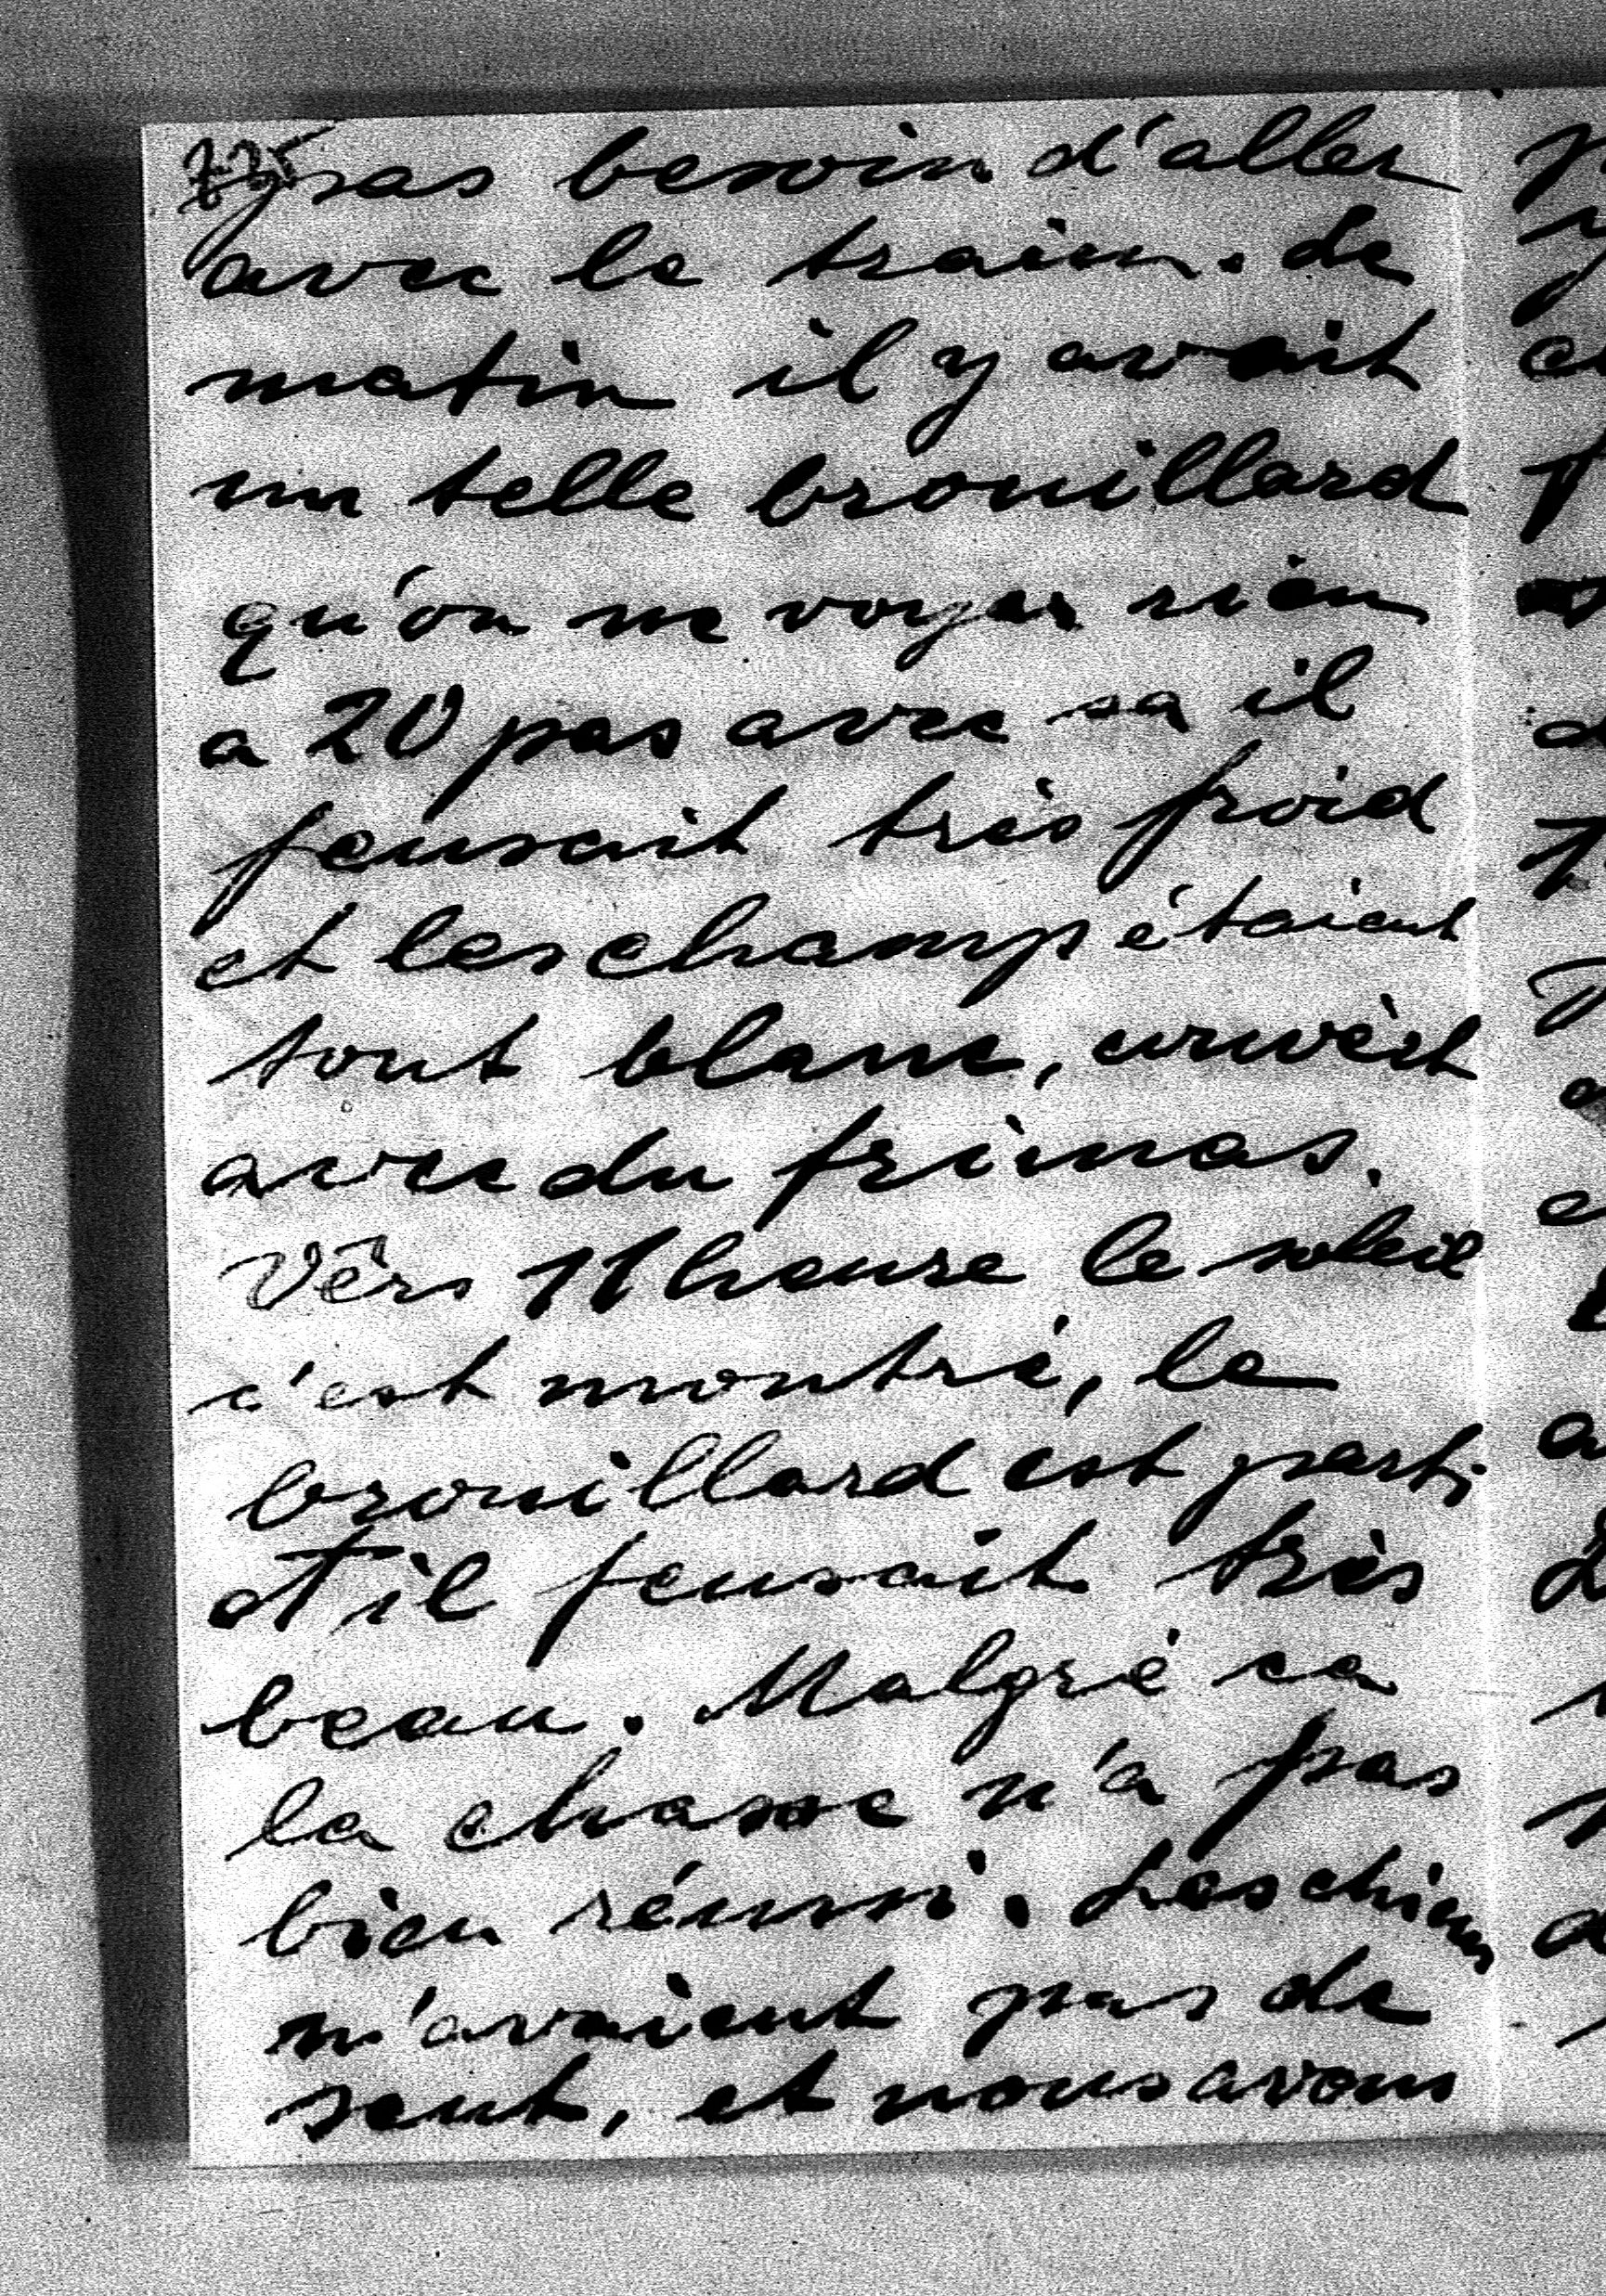 pas besoin d'aller
avec le train. Le
matin il y avait
un telle brouillard
qu'on ne voyer rien
a 20 pas avec sa il
feusait très froid
et les champ étaient
tout blanc, cruvèrt
avec du frimas.
Vèrs 11 heure le soleil
c'est montré, le
brouillard est parti
et il feusait très
beau. Malgré ca
la chasse n'a pas
bien réussi. Les chiens
n'avaient pas de
sent, et nous avons